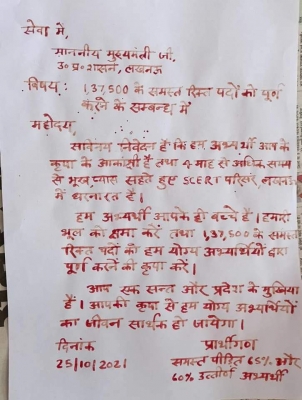 सेवा में,
माननीय मुख्यमंत्री जी,
उ० प्र० शासन, लखनऊ
विषय : 1,37,500 के समस्त रिक्त पदों को पूर्ण
करने के सम्बन्ध में
महोदय,
सविनय निवेदन है कि हम अभ्यर्थी आप के
कृपा के आकांक्षी हैं तथा 4 माह से अधिक समय
से भूख प्यास सहते हुए SCERT परिसर, लखनऊ
में धरनारत हैं।
हम अभ्यर्थी आपके ही बच्चे हैं। हमारी
भूल को क्षमा करें तथा 1,37,500 के समस्त
रिक्त पदों को हम योग्य अभ्यर्थियों द्वारा
पूर्ण करने की कृपा करें।
आप एक सन्त और प्रदेश के मुखिया
हैं। आपकी कृपा से हम योग्य अभ्यर्थियों
का जीवन सार्थक हो जायेगा।
दिनांक प्रार्थीगण
25/10/2021 समस्त पीड़ित 65% और
60% उत्तीर्ण अभ्यर्थी